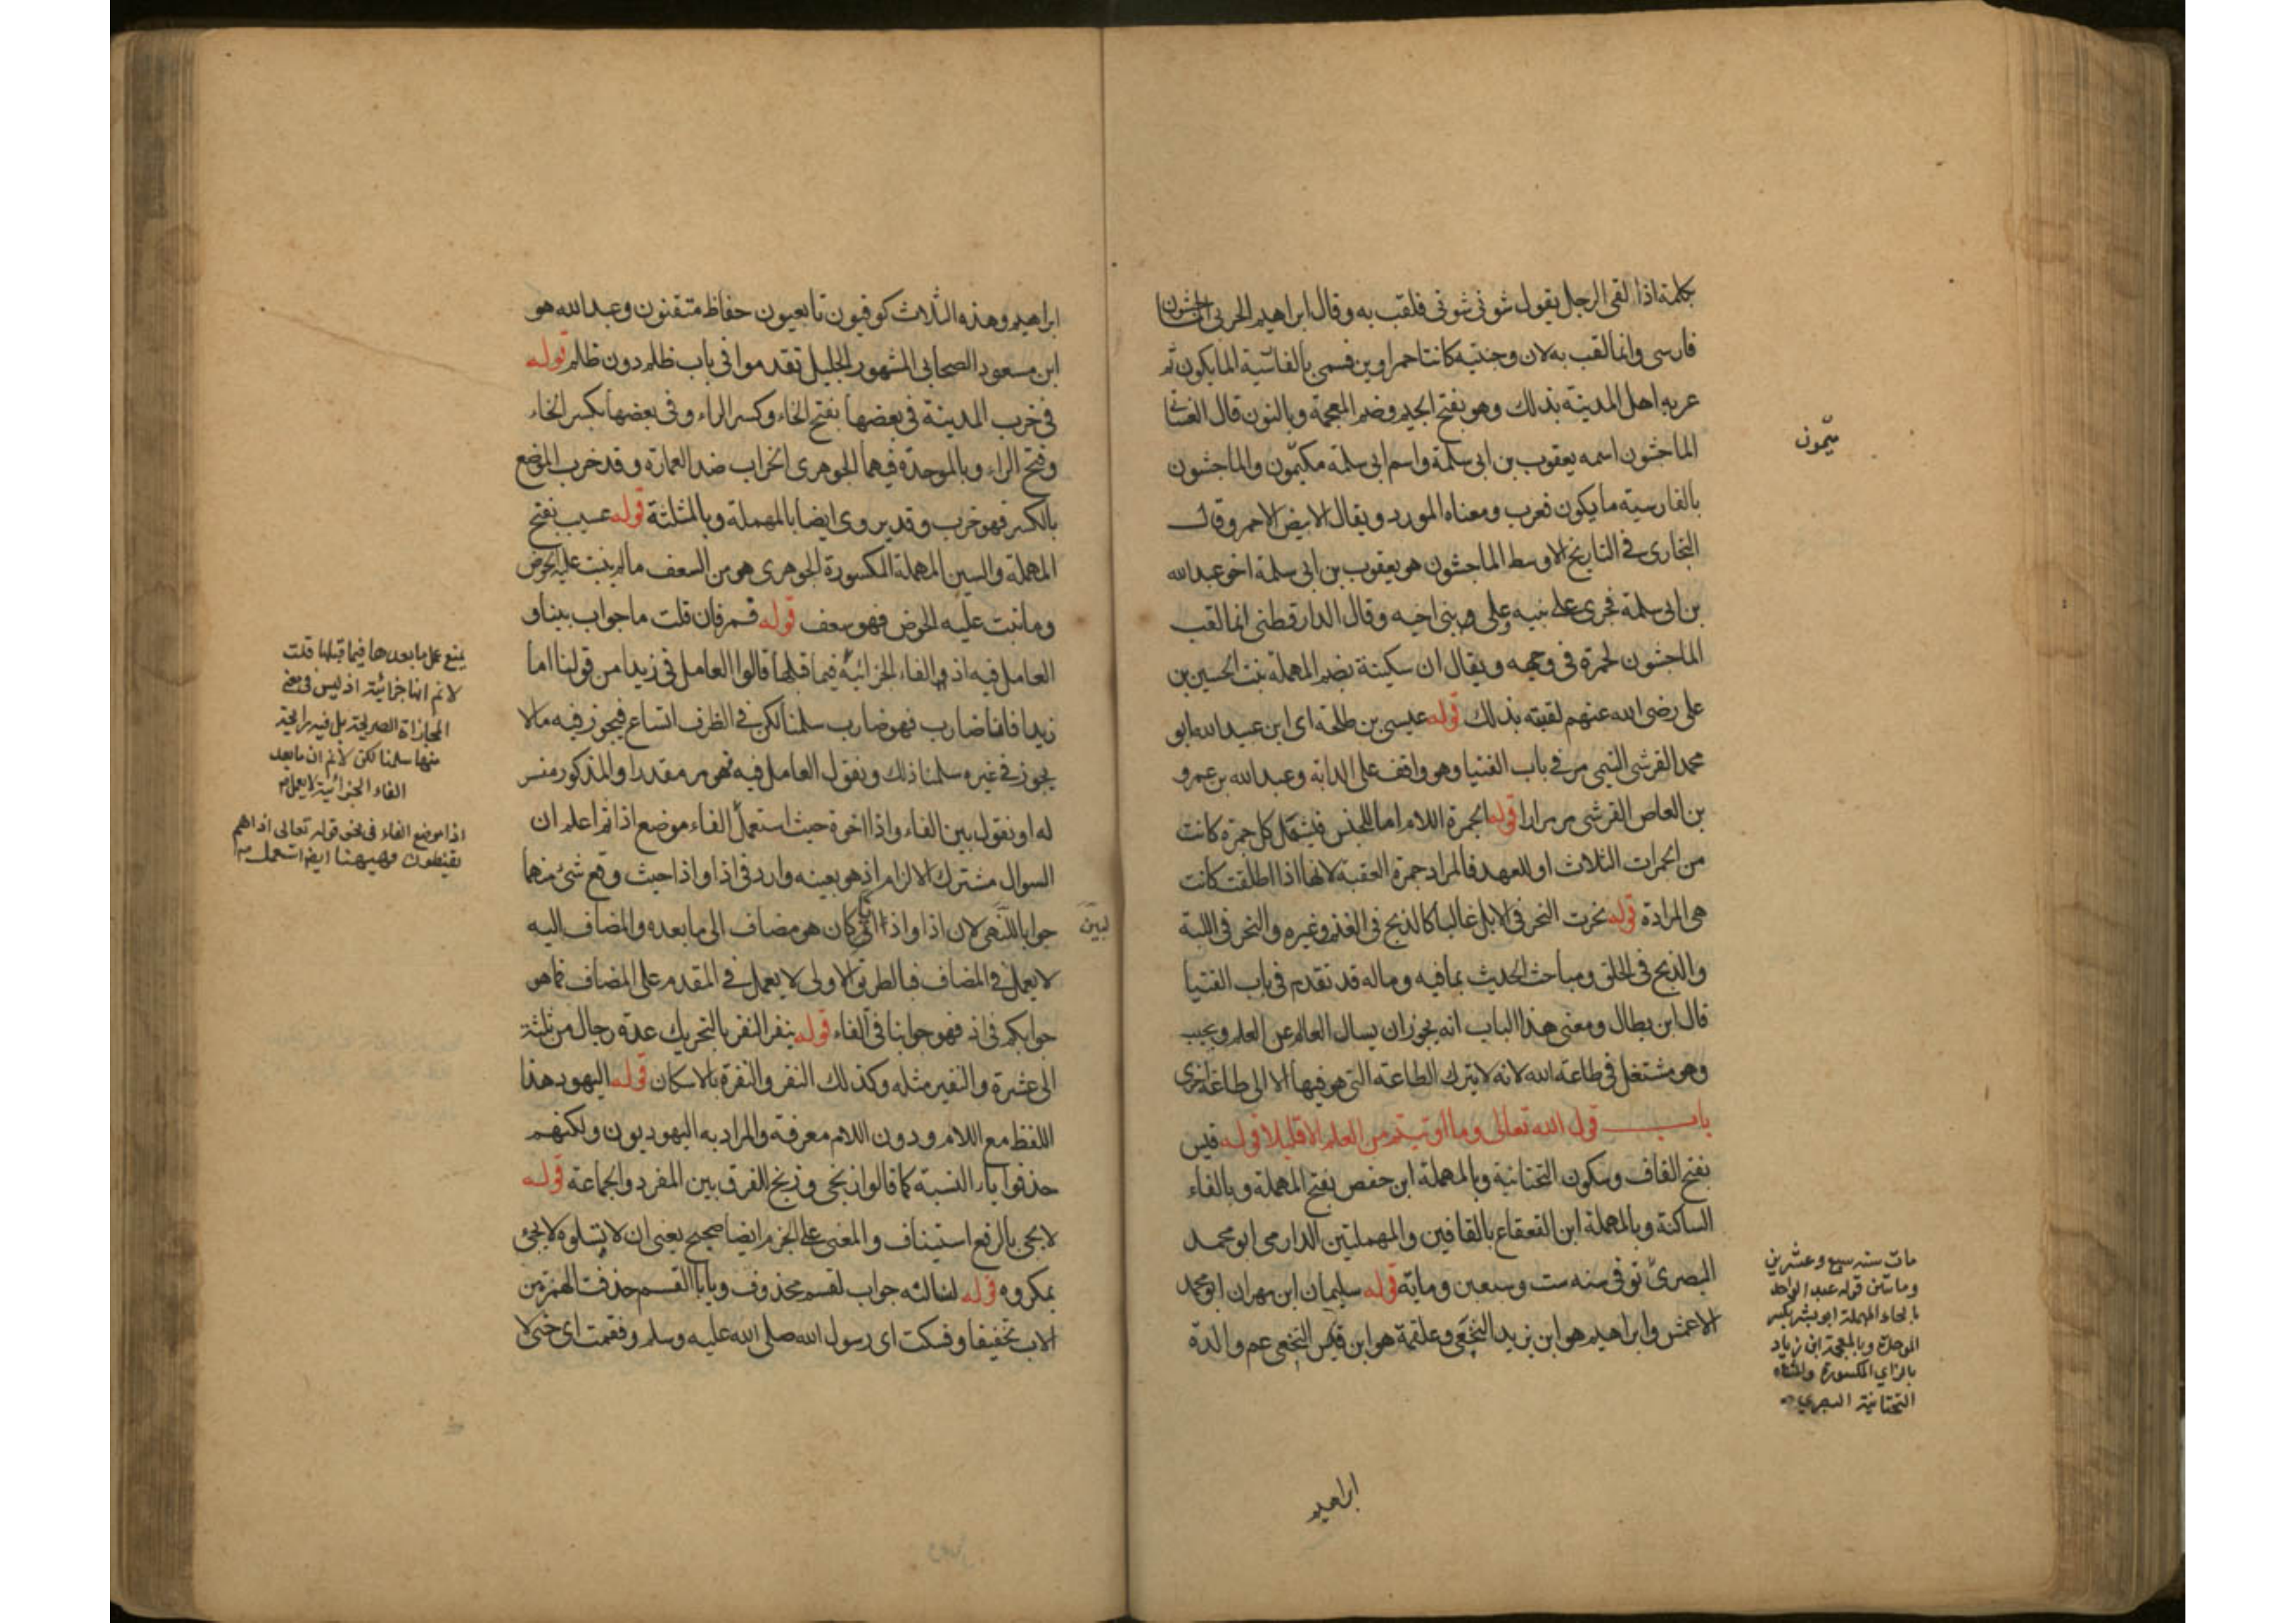 بكلمة اذا لقى الرجل يقول شونى شونى فلقب به وقال ابراهيم الحربى الماجشون
فارسى وانما لقب به لان وجنتيه كانتا حمراوين فسمى بالفارسية المايكون ثم
عربه اهل المدينة بذلك وهو بفتح الجيم وضم المعجمة وبالنون قال الغسانى
الماجشون اسمه يعقوب بن ابى سلمة واسم ابى سلمة
ميمون
والماجشون
بالفارسية مايكون فعرب ومعناه المورد ويقال الابيض الاحمر وقال
البخارى فى التاريخ الاوسط الماجشون هو يعقوب بن ابى سلمة اخو عبدالله
بن ابى سلمة فجرى على بنيه وعلى بنى اخيه وقال الدارقطنى انما لقب
الماجشون لحمرة فى وجهه ويقال ان سكينة بضم المهملة بنت الحسين بن
على رضى الله عنهم لقبته بذلك قوله عيسى بن طلحة اى ابن عبيد الله ابو
محمد القرشى التيمى مر فى باب الفتيا وهو واقف على الدابة وعبد الله بن عمرو
بن العاص القرشى مر مرارا قوله الجمرة اللام اما للجنس فيشمل كل جمرة كانت
من الجمرات الثلاث او للعهد فالمراد جمرة العقبة لانها اذا اطلقت كانت
هى المرادة قوله نحرت النحر فى الابل غالبا كالذبح فى الغنم وغيره والنحر فى اللبة
والذبح فى الحلق ومباحث الحديث بما فيه وماله قد تقدم فى باب الفتيا
قال ابن بطال ومعنى هذا الباب انه يجوز ان يسال العالم عن العلم ويجيب
وهو مشتغل فى طاعة الله لانه لا يترك الطاعة التى هو فيها الا الى طاعة اخرى
باب قول الله تعالى وما اوتيتم من العلم الا قليلا قوله قيس
بفتح القاف وسكون التحتانية وبالمهملة ابن حفص بفتح المهملة وبالفاء
الساكنة وبالمهملة ابن القعقاع بالقافين والمهملتين الدارمى ابو محمد
البصرى توفى سنه ست وسبعين وماية قوله سليمان ابن مهران ابو محمد
الاعمش وابراهيم هو ابن يزيد النخعى وعلقمة هو ابن قيس النخعى عم والدة
مات سنه سبع وعشرين
وماتين قوله عبد الواحد
بالحاء المهملة ابو بشر بكسر
الموحدة وبالمعجمة ابن زياد
بالزاي المكسورة والمثناه
التحتانية البصري
ابراهيم
ابراهيم وهذه الثلاث كوفيون تابعيون حفاظ متقنون وعبد الله هو
ابن مسعود الصحابى المشهور الجليل تقدموا فى باب ظلم دون ظلم قوله
فى خرب المدينة فى بعضها بفتح الخاء وكسر الراء وفى بعضها بكسر الخاء
وفتح الراء وبالموحدة فيهما الجوهرى الخراب ضد العمارة وقد خرب الموضع
بالكسر فهو خرب وقد يروى ايضا بالمهملة وبالمثلثة قوله عسيب بفتح
المهملة والسين المهملة المكسورة الجوهرى هو من السعف مالم ينبت عليه الخوص
وما نبت عليه الخوص فهو سعف قوله قمت فان قلت ما جواب بينا و
العامل فيه اذ والفاء الجزائية فيما قبلها قالوا العامل فى زيدا من قولنا اما
زيدا فانا ضارب فهو ضارب سلمنا لكن فى الظرف اتساع فيجوز فيه مالا
يجوز فى غيره سلمنا ذلك ونقول العامل فيه مقدرا والمذكور مفسر
له او نقول بين الفاء واذا اخوة حيث استعمل الفاء موضع اذا ثم اعلم ان
السوال مشترك الالزام اذ هو بعينه وارد فى اذ او اذا حيث وقع شىء منهما
جوابا
لبين
لان اذ او اذا كان هو مضاف الى ما بعده والمضاف اليه
لا يعمل فى المضاف فبالطريق الاولى لا يعمل فى المقدم على المضاف فما هو
جوابكم فى اذ فهو جوابنا فى الفاء قوله بنفر النفر بالتحريك عدة رجال من ثلثة
الى عشرة والنفير مثله وكذلك النفر والنفرة بالاسكان قوله اليهود هذا
اللفظ مع اللام ودون اللام معرفة والمراد به اليهوديون ولكنهم
حذفوا ياء النسبة كما قالوا زنجى وزنج للفرق بين المفرد والجماعة قوله
لا يجى بالرفع استيناف والمعنى على الجزم ايضا صحيح يعنى ان لا تسلوه لا يجئ
بمكروه قوله لنسالنه جواب لقسم محذوف ويا با القسم حذفت الهمزة من
الاب تخفيفا وفسكت اى رسول الله صلى الله عليه وسلم وفقمت اى حتى لا
يمنع عمل ما بعدها فيما قبلها قلت
لا نم انها جزائية اذ ليس فى معنى
المجازاة الصريحة بل فيه رايحة
منها سلمنا لكن لا نم ان ما بعد
الفاء الجزائية لا يعمل
اذا موضع الفاء فى نحو قوله تعالى اذا هم
يقنطون فهيهنا ايضا استعمل